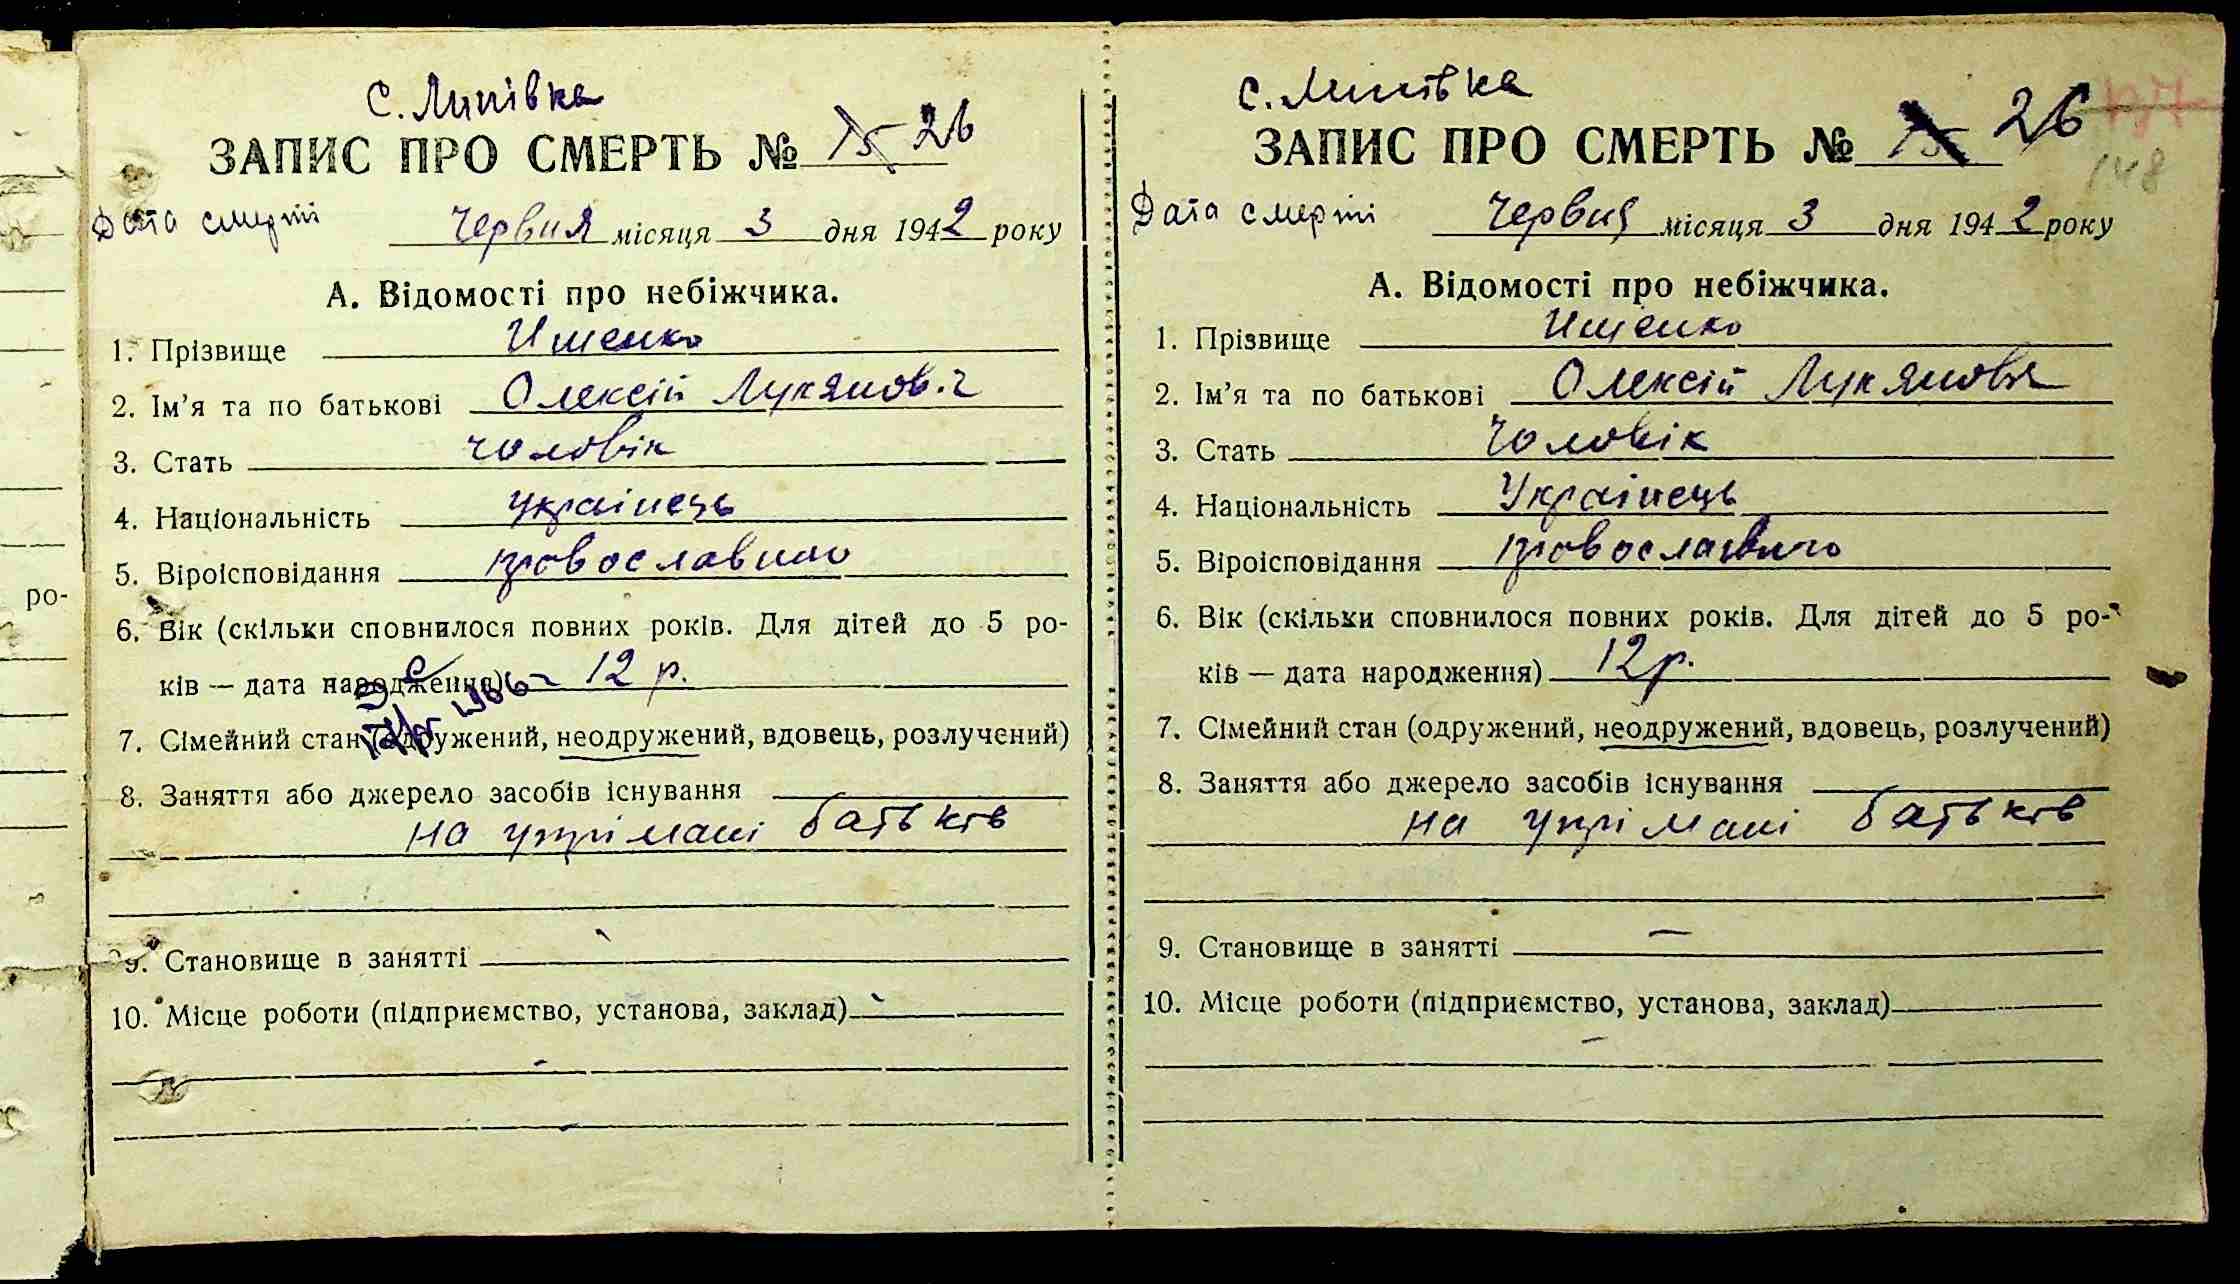 ро-
с. Липівка
ЗАПИС ПРО СМЕРТЬ № 15 26
Дата смерті червня місяця 3 дня 1942 року
А. Відомості про небіжчика.
1. Прізвище Ищенко
2. Ім'я та по батькові Олексій Лукянович
3. Стать чоловік
4. Національність українець
5. Віроісповідання провославного
6. Вік (скільки сповнилося повних років. Для дітей до 5 ро-
ків — дата народження) 12 р.
7. Сімейний стан (одружений, неодружений, вдовець, розлучений)
8. Заняття або джерело засобів існування
на утрімані батьків
9. Становище в занятті
10. Місце роботи (підприємство, установа, заклад)
с. Липівка
ЗАПИС ПРО СМЕРТЬ № 15 26
148
Дата смерті червня місяця 3 дня 1942 року
А. Відомості про небіжчика.
1. Прізвище Ищенко
2. Ім'я та по батькові Олексій Лукянович
3. Стать Чоловік
4. Національність Українець
5. Віроісповідання провославного
6. Вік (скільки сповнилося повних років. Для дітей до 5 ро-
ків — дата народження) 12 р.
7. Сімейний стан (одружений, неодружений, вдовець, розлучений)
8. Заняття або джерело засобів існування
на утрімані батьків
9. Становище в занятті —
10. Місце роботи (підприємство, установа, заклад)
—